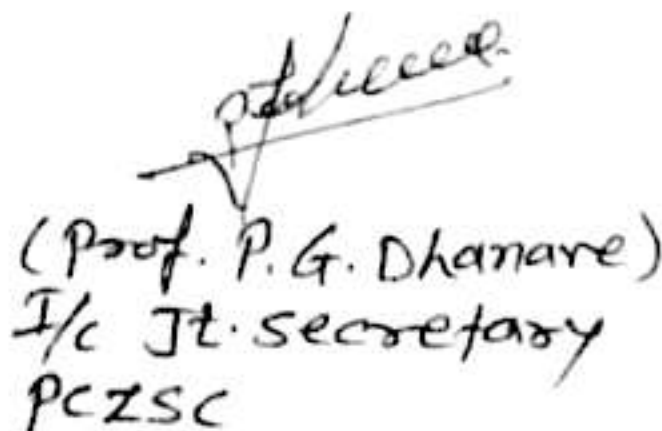 (Prof. P. G. Dhanare)
I/c Jt. Secretary
PCZSC